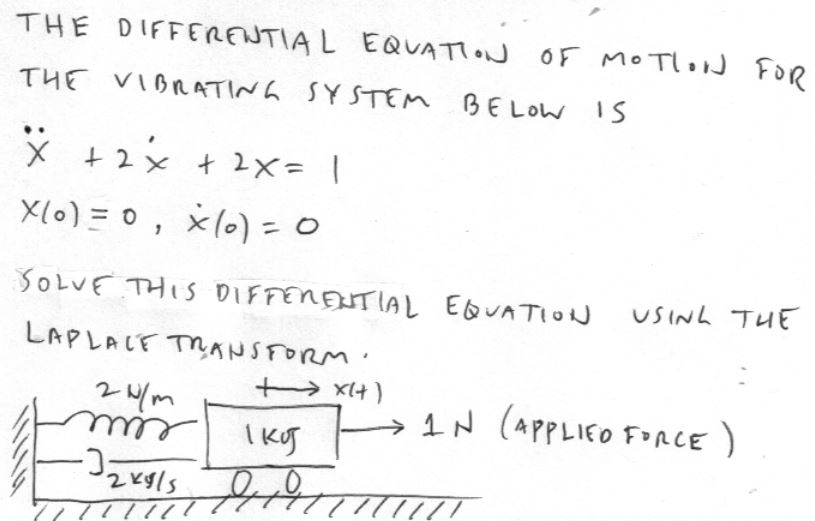 THE DIFFERENTIAL EQUATION OF MOTION FOR
THE VIBRATING SYSTEM BELOW IS
ẍ + 2ẋ + 2x = 1
x(0) = 0, ẋ(0) = 0
SOLVE THIS DIFFERENTIAL EQUATION USING THE
LAPLACE TRANSFORM.
2 N/m x(t)
1 kg 1 N (APPLIED FORCE)
2 kg/s